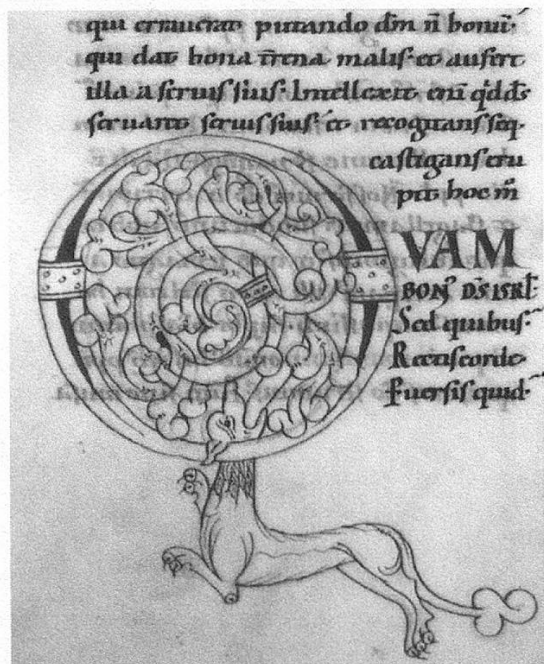 qui errauerat putando dm̅ n̅ bonu̅
qui dat bona t̅rena malis· et aufert
illa a seruis suis· Intellexit eni̅ qd̅ ds̅
seruant seruis suis· et recogitans seq·
castigans eru
pit hoc m̅
QVAM
BON' DS̅ ISRL̅·
Sed quibus·
Rectis corde·
Puersis quid·